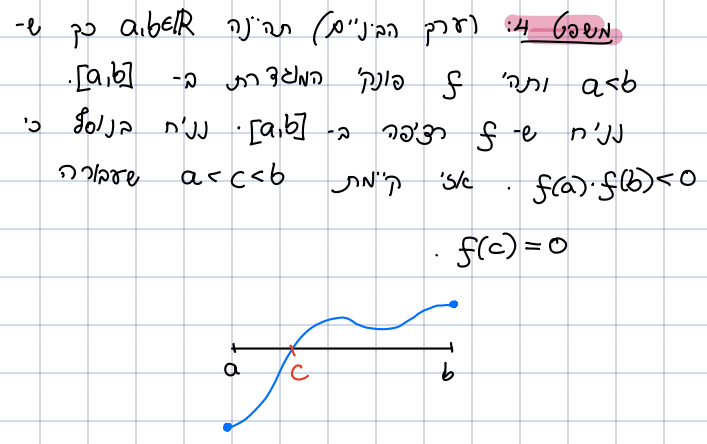 משפט 4: (ערך הביניים) תהיינה a,b∈ℝ כך ש-
a<b ותהי f פונק' המוגדרת ב- [a,b].
נניח ש- f רציפה ב- [a,b]. נניח בנוסף כי
f(a)·f(b)<0. אזי קיימת a<c<b שעבורה
f(c)=0.
a c b